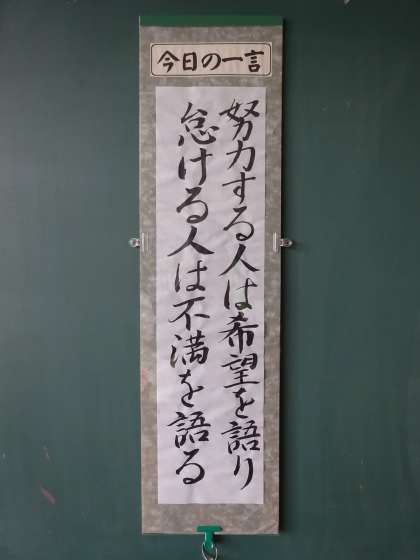 今日の一言
努力する人は希望を語り
怠ける人は不満を語る